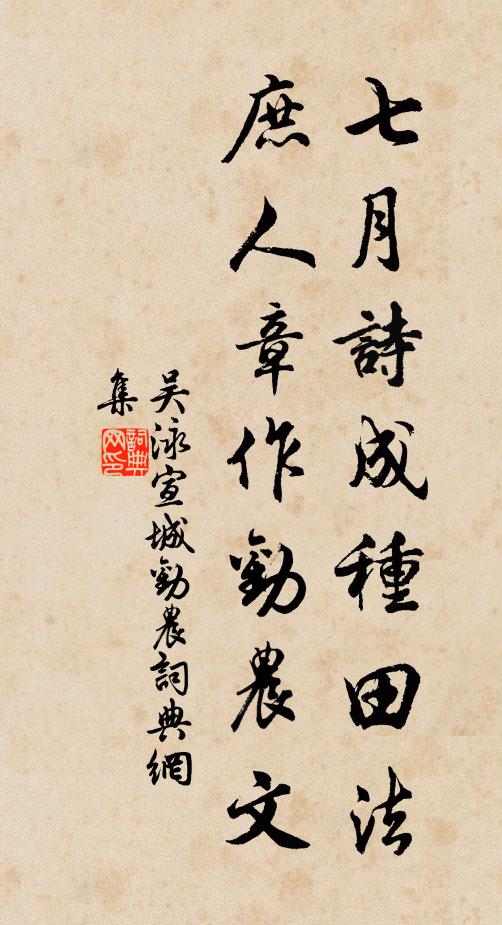 七月詩成種田法
庶人章作勸農文
吴泳宣城勸農詞典網
集
詞典網印